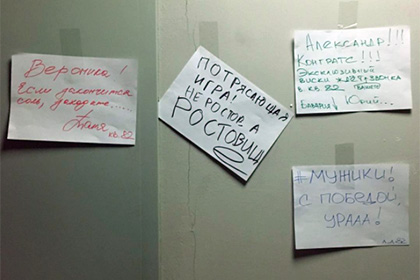 Вероника!
Если закончится
соль, заходите....
Таня
кв. 82
ПОТРЯСАЮЩАЯ
ИГРА!
НЕ РОСТОВ, А
РОСТОВИЩЕ
АЛЕКСАНДР!!!
КОНГРАТС!!!
ЭКСКЛЮЗИВНЫЙ
ВИСКИ ЖДЁТ
В. КВ. 82
БАВАРИЯ
Юрий...
#МУЖИКИ!
С ПОБЕДОЙ,
УРААА!